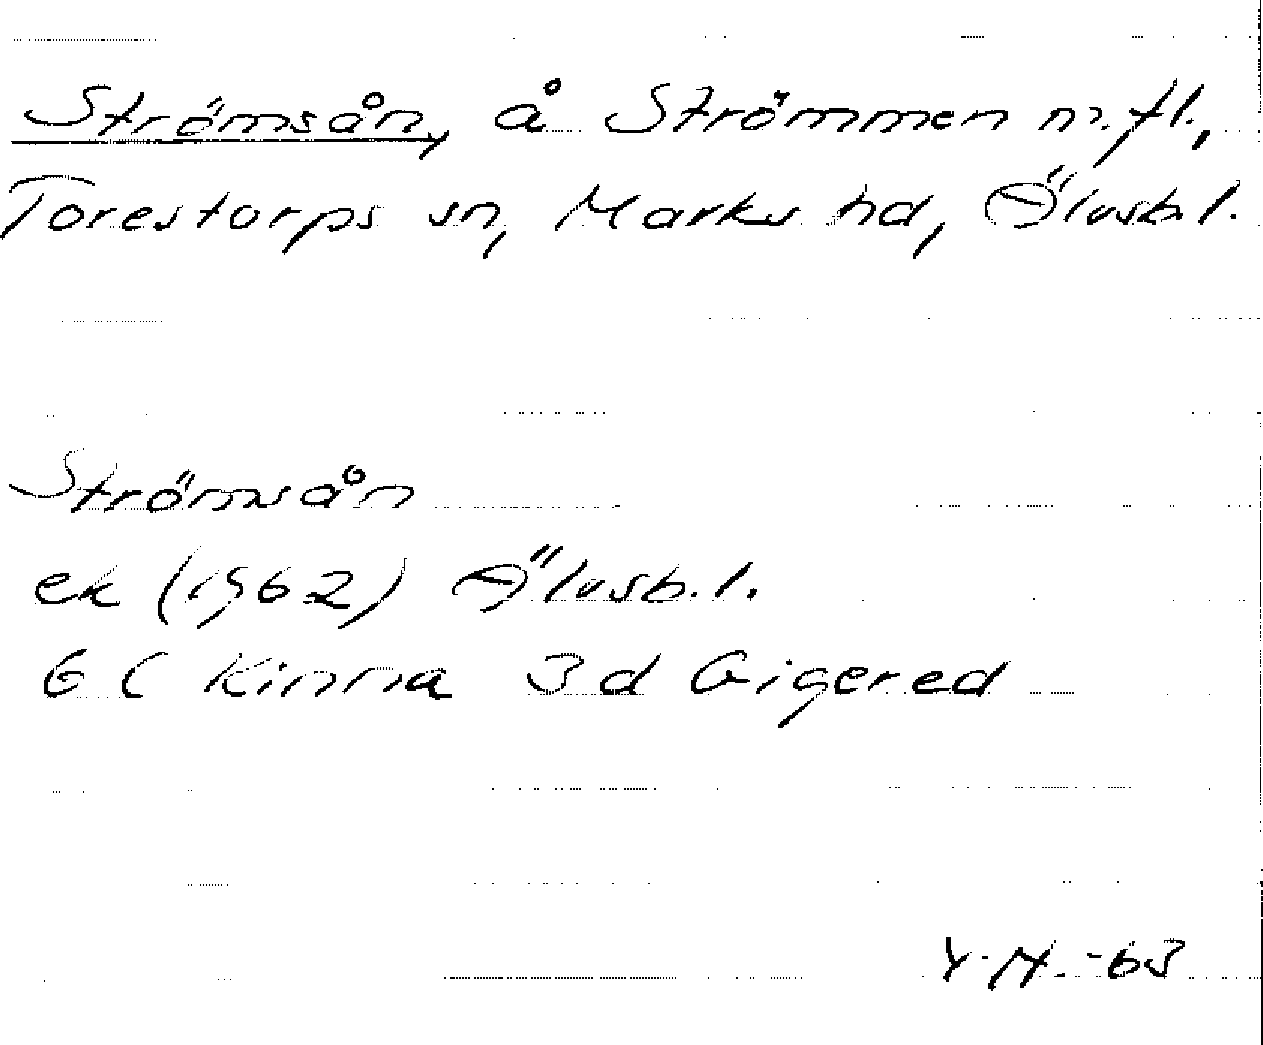 Strömsån, å Strömmen m.fl.,
Torestorps sn, Marks hd, Älvsb.l.
Strömsån
ek (1962) Älvsb.l.
6 C Kinna 3d Gigered
Y.H. -63